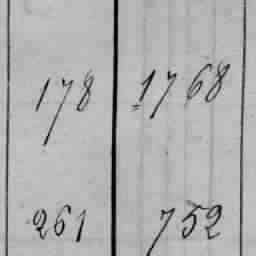 178 1768
261 752